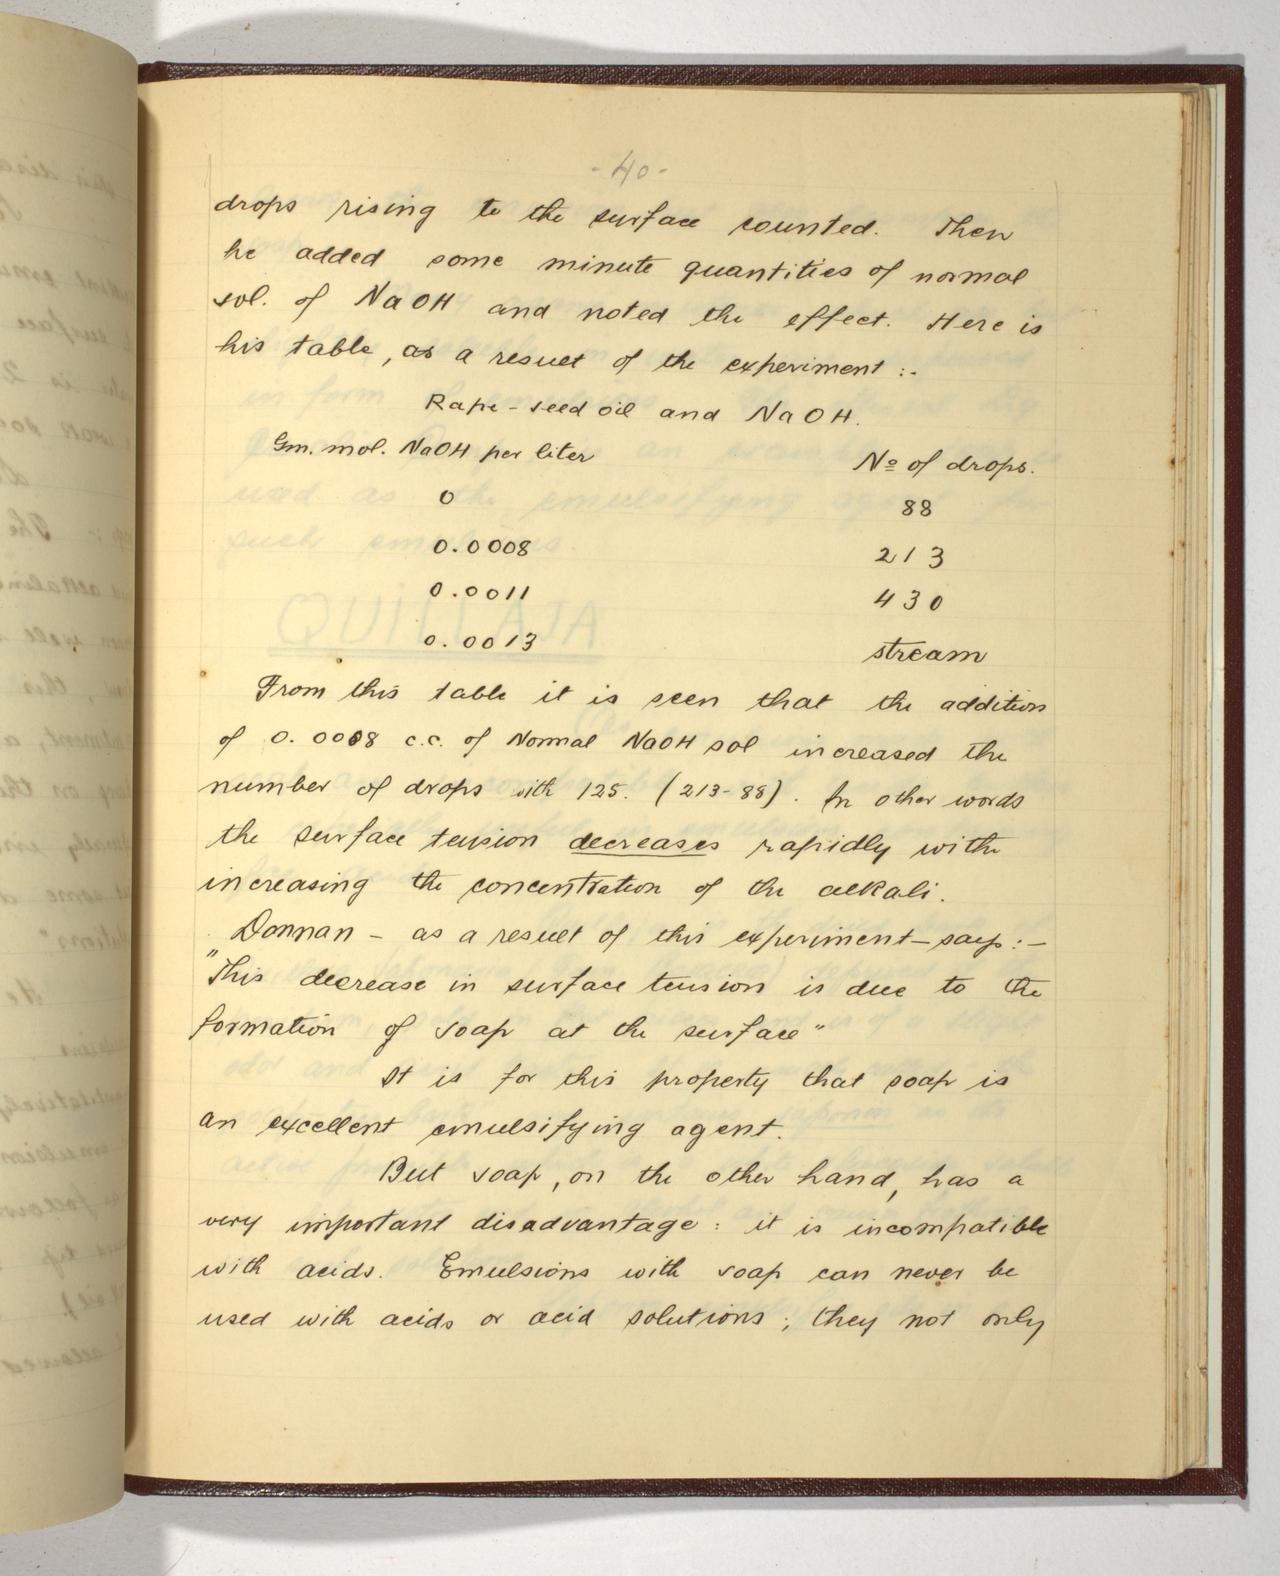 - 40 -
drops rising to the surface counted. Then
he added some minute quantities of normal
sol. of NaOH and noted the effect. Here is
his table, as a result of the experiment :-
Rape-seed oil and NaOH.
Gm. mol. NaOH per liter    No of drops.
0    88
0.0008    213
0.0011    430
0.0013    stream
From this table it is seen that the addition
of 0.0008 c.c. of Normal NaOH sol increased the
number of drops with 125. (213-88). In other words
the surface tension decreases rapidly with
increasing the concentration of the alkali.
Donnan - as a result of this experiment - says :-
"This decrease in surface tension is due to the
formation of soap at the surface"
It is for this property that soap is
an excellent emulsifying agent.
But soap, on the other hand, has a
very important disadvantage : it is incompatible
with acids. Emulsions with soap can never be
used with acids or acid solutions ; they not only